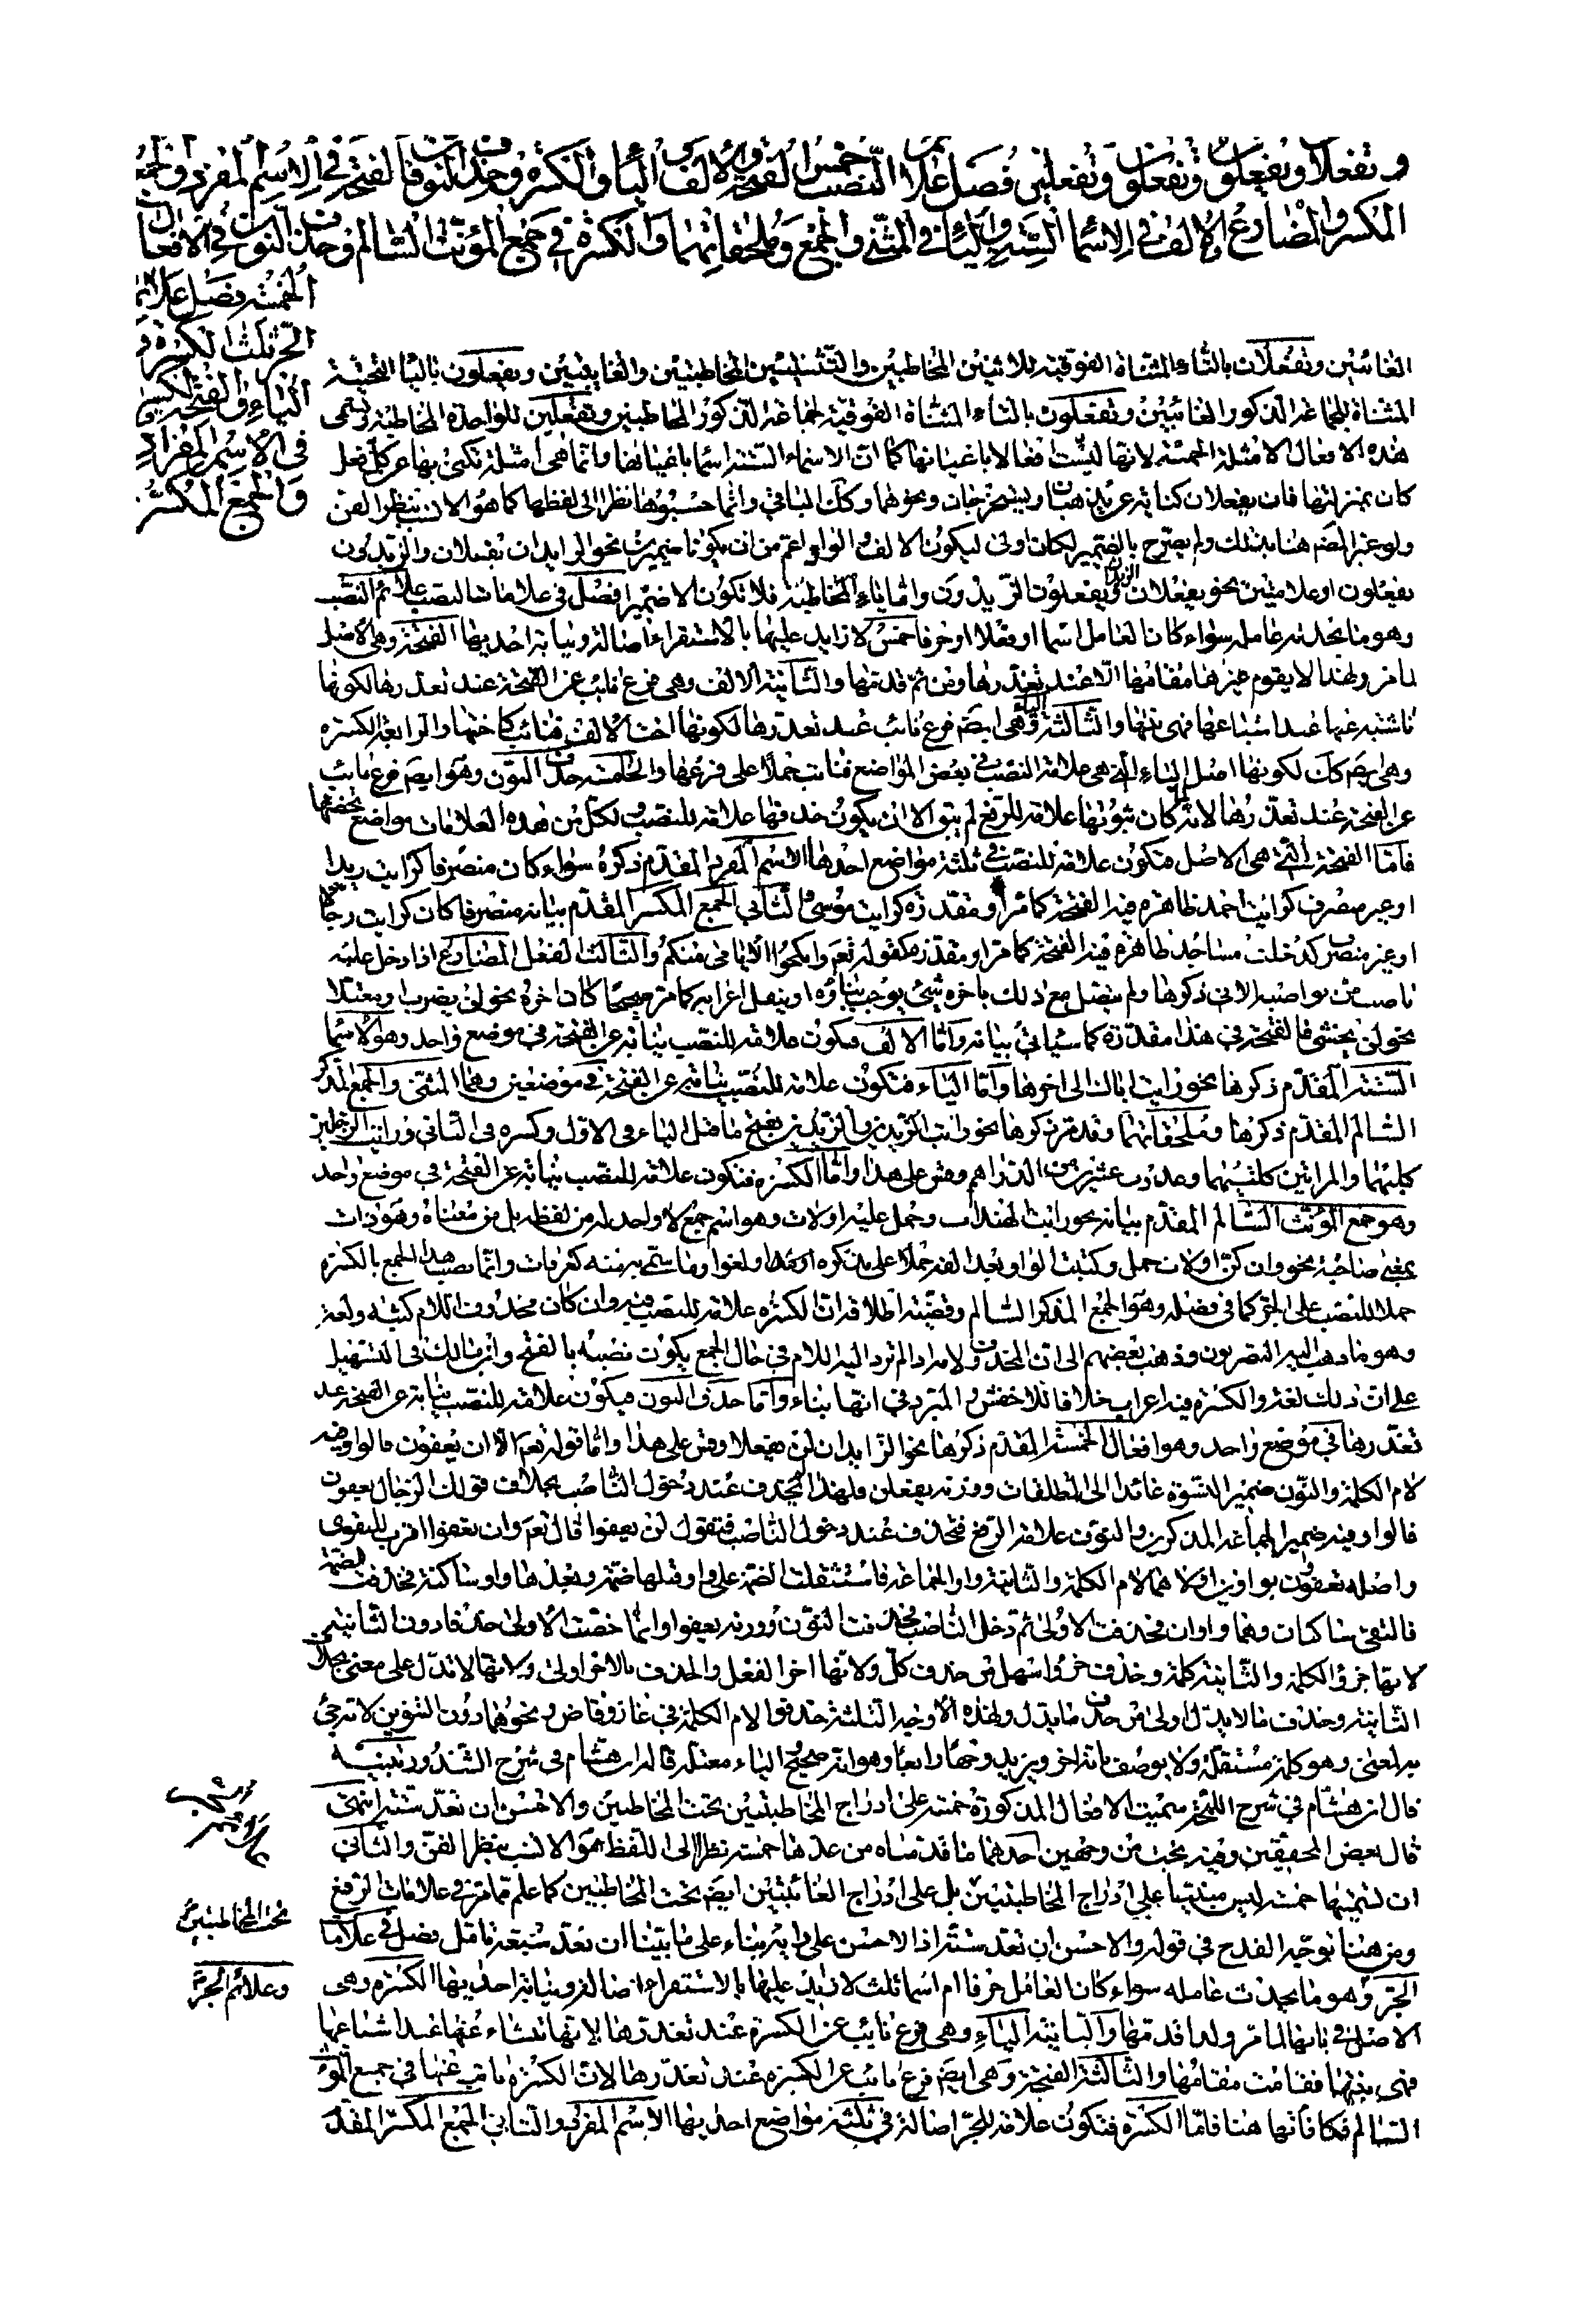 وتفعلان ويفعلون وتفعلون وتفعلين فصل علائم النصب خمس الفتحة والالف والياء والكسرة وحذف النون فالفتحة في الاسم المفرد والجمع
المكسر والمضارع والالف في الاسماء الستة والياء في المثنى والجمع وملحقاتهما والكسرة في جمع المؤنث السالم وحذف النون في الافعال
الخمسة فصل علائم
الجر ثلث الكسرة و
الياء والفتحة فالكسرة
في الاسم المفرد
والجمع المكسر
الغائبين وتفعلان بالتاء المثناة الفوقية للاثنين المخاطبين والتثنيتين المخاطبتين والغايبتين ويفعلون بالياء التحتية
المثناة لجماعة الذكور الغائبين وتفعلون بالتاء المثناة الفوقية لجماعة الذكور المخاطبين وتفعلين للواحدة المخاطبة وتسمى
هذه الافعال الامثلة الخمسة لانها ليست افعالا باعيانها كما ان الاسماء الستة اسما باعيانها وانما هي امثلة تكنى بها عن كل فعل
كان بمنزلتها فان يفعلان كناية عن يذهبان ويستخرجان ونحوهما وكذا الباقي وانما حسبوها نظرا الى لفظها كما هو الانسب بنظر الفن
ولو عبر المصنف هنا بذلك ولم يصرح بالضمير لكان اولى ليكون الالف والواو اعم من ان يكونا ضميرين نحو الزايدان يفعلان والزيدون
يفعلون او علامتين نحو يفعلان الزيدان ويفعلون الزيدون واما ياء المخاطبة فلا تكون الا ضميرا فصل في علامات النصب علائم النصب
وهو ما يحدثه عامله سواء كان العامل اسما او فعلا او حرفا خمس لا زايد عليها بالاستقراء اصالة ونيابة احديها الفتحة وهي الاصل
لما مر ولهذا لا يقوم غيرها مقامها الا عند تعذرها ومن ثم قدمها والثانية الالف وهي فرع نائب عن الفتحة عند تعذرها لكونها
ناشئة عنها عند اشباعها فهي بنتها والثالثة الياء وهي ايضا فرع نائب عند تعذرها لكونها اخت الالف فنابت كاختها والرابعة الكسرة
وهي ايضا كذلك لكونها اصل الياء التي هي علامة النصب في بعض المواضع فنابت حملا على فرعها والخامسة حذف النون وهو ايضا فرع نائب
عن الفتحة عند تعذرها لانه لما كان ثبوتها علامة للرفع لم يبق الا ان يكون حذفها علامة للنصب ولكل من هذه العلامات مواضع تخصها
فاما الفتحة التي هي الاصل فتكون علامة للنصب في ثلثة مواضع احدها الاسم المفرد المقدم ذكره سواء كان منصرفا كرايت زيدا
او غير منصرف كرايت احمد ظاهرة فيه الفتحة كما مر او مقدرة كرايت موسى والثاني الجمع المكسر المقدم بيانه منصرفا كان كرايت رجالا
او غير منصرف كدخلت مساجد ظاهرة فيه الفتحة كما مر او مقدرة كقوله تعم وانكحوا الايامى منكم والثالث الفعل المضارع اذا دخل عليه
ناصب من نواصبه الاتي ذكرها ولم يتصل مع ذلك باخره شيئ يوجب بناؤه او ينقل اعرابه كما مر صحيحا كان اخره نحو لن يضرب او معتلا
نحو لن يخشى فالفتحة في هذا مقدرة كما سياتي بيانه واما الالف فيكون علامة للنصب نيابة عن الفتحة في موضع واحد وهو الاسما
الستة المقدم ذكرها نحو رايت اباك الى اخرها واما الياء فتكون علامة للنصب نيابة عن الفتحة في موضعين وهما المثنى والجمع المذكر
السالم المقدم ذكرها وملحقاتهما وقد مر ذكرها نحو رايت الزيدين والزيدين بفتح ما قبل الياء في الاول وكسره في الثاني ورايت الرجلين
كليهما والمراتين كلتيهما وعددت عشرين من الدراهم وقس على هذا واما الكسرة فتكون علامة للنصب نيابة عن الفتحة في موضع واحد
وهو جمع المؤنث السالم المقدم بيانه نحو رايت الهندات وحمل عليه اولات وهو اسم جمع لا واحد له من لفظه بل من معناه وهو ذات
بمعنى صاحبة نحو وان كن اولات حمل وكتبت الواو بعد الفه حملا على مذكره وما سمي به منه كعرفات وانما نصب هذا الجمع بالكسرة
حملا للنصب على الجر كما في اصله وهو الجمع المذكر السالم وقضية اطلاقه ان الكسرة علامة للنصب فيه وان كان محذوف اللام كثبة ولغة
وهو ما ذهب اليه البصريون وذهب بعضهم الى ان المحذوف لامه اذا لم ترد اليه اللام في حال الجمع يكون نصبه بالفتح وابن مالك في التسهيل
على ان ذلك لغة والكسرة فيه اعراب خلافا للاخفش والمبرد في انها بناء واما حذف النون فيكون علامة للنصب نيابة عن الفتحة عند
تعذرها في موضع واحد وهو افعال الخمسة المقدم ذكرها نحو الزايدان لن يفعلا وقس على هذا واما قوله تعم الا ان يعفون فالواو فيه
لام الكلمة والنون ضمير النسوة عائد الى المطلقات ووزنه يفعلن فلهذا لم تحذف عند دخول الناصب بخلاف قولك الرجال يعفون
فالواو فيه ضمير لجماعة المذكرين والنون علامة الرفع فتحذف عند دخول الناصب فتقول لن يعفوا قال تعم وان تعفوا اقرب للتقوى
واصله تعفوون بواوين اولاهما لام الكلمة والثانية واو الجماعة فاستثقلت الضمة على واو قبلها ضمة وبعدها واو ساكنة فحذفت الضمة
فالتقى ساكنان وهما واوان فحذفت الاولى ثم دخل الناصب فحذفت النون ووزنه يعفوا وانما خصت الاولى حذفا دون الثانية
لانها جزؤ الكلمة والثانية كلمة وحذف جزؤ اسهل من حذف كل ولانها اخر الفعل والحذف بالاخر اولى ولانها لا تدل على معنى بخلاف
الثانية وحذف ما لا يدل اولى من حذف ما يدل ولهذه الاوجه الثلثة حذفوا لام الكلمة في غاز وقاض ونحوهما دون التنوين لانه جيئ
به لمعنى وهو كلمة مستقلة ولا يوصف بانه اخر ويزيد وجها رابعا وهو انه صحيح الياء معتلة قاله ابن هشام في شرح الشذور تنبيه
قال ابن هشام في شرح اللمحة سميت الافعال المذكورة خمسة على ادراج المخاطبتين تحت المخاطبين والاحسن ان تعد ستة انتهى
قال بعض المحققين وفيه بحث من وجهين احدهما ما قدمناه من عدها خمسة نظرا الى اللفظ هو الانسب بنظر الفن والثاني
ان تسميتها خمسة ليس مبنيا على ادراج المخاطبتين بل على ادراج الغائبتين ايضا تحت المخاطبين كما علم مما مر في علامات الرفع
ومن هنا توجه القدح في قوله والاحسن ان تعد ستة اذ الاحسن على رايه بناء على ما بينا ان تعد سبعة فاقل فصل في علامات
الجر وهو ما يحدث عامله سواء كان العامل حرفا ام اسما ثلث لا زايد عليها بالاستقراء اصالة ونيابة احديها الكسرة وهي
الاصل في بابها لما مر ولذا قدمها والثانية الياء وهي فرع نايب عن الكسرة عند تعذرها لانها تنشاء عنها عند اشباعها
فهي بنتها فقامت مقامها والثالثة الفتحة وهي ايضا فرع نائب عن الكسرة عند تعذرها لان الكسرة نابت عنها في جمع المؤنث
السالم فكافأتها هنا فاما الكسرة فتكون علامة للجر اصالة في ثلثة مواضع احديها الاسم المفرد والثاني الجمع المكسر المقدم
تحت المخاطبتين
وعلائم الجر